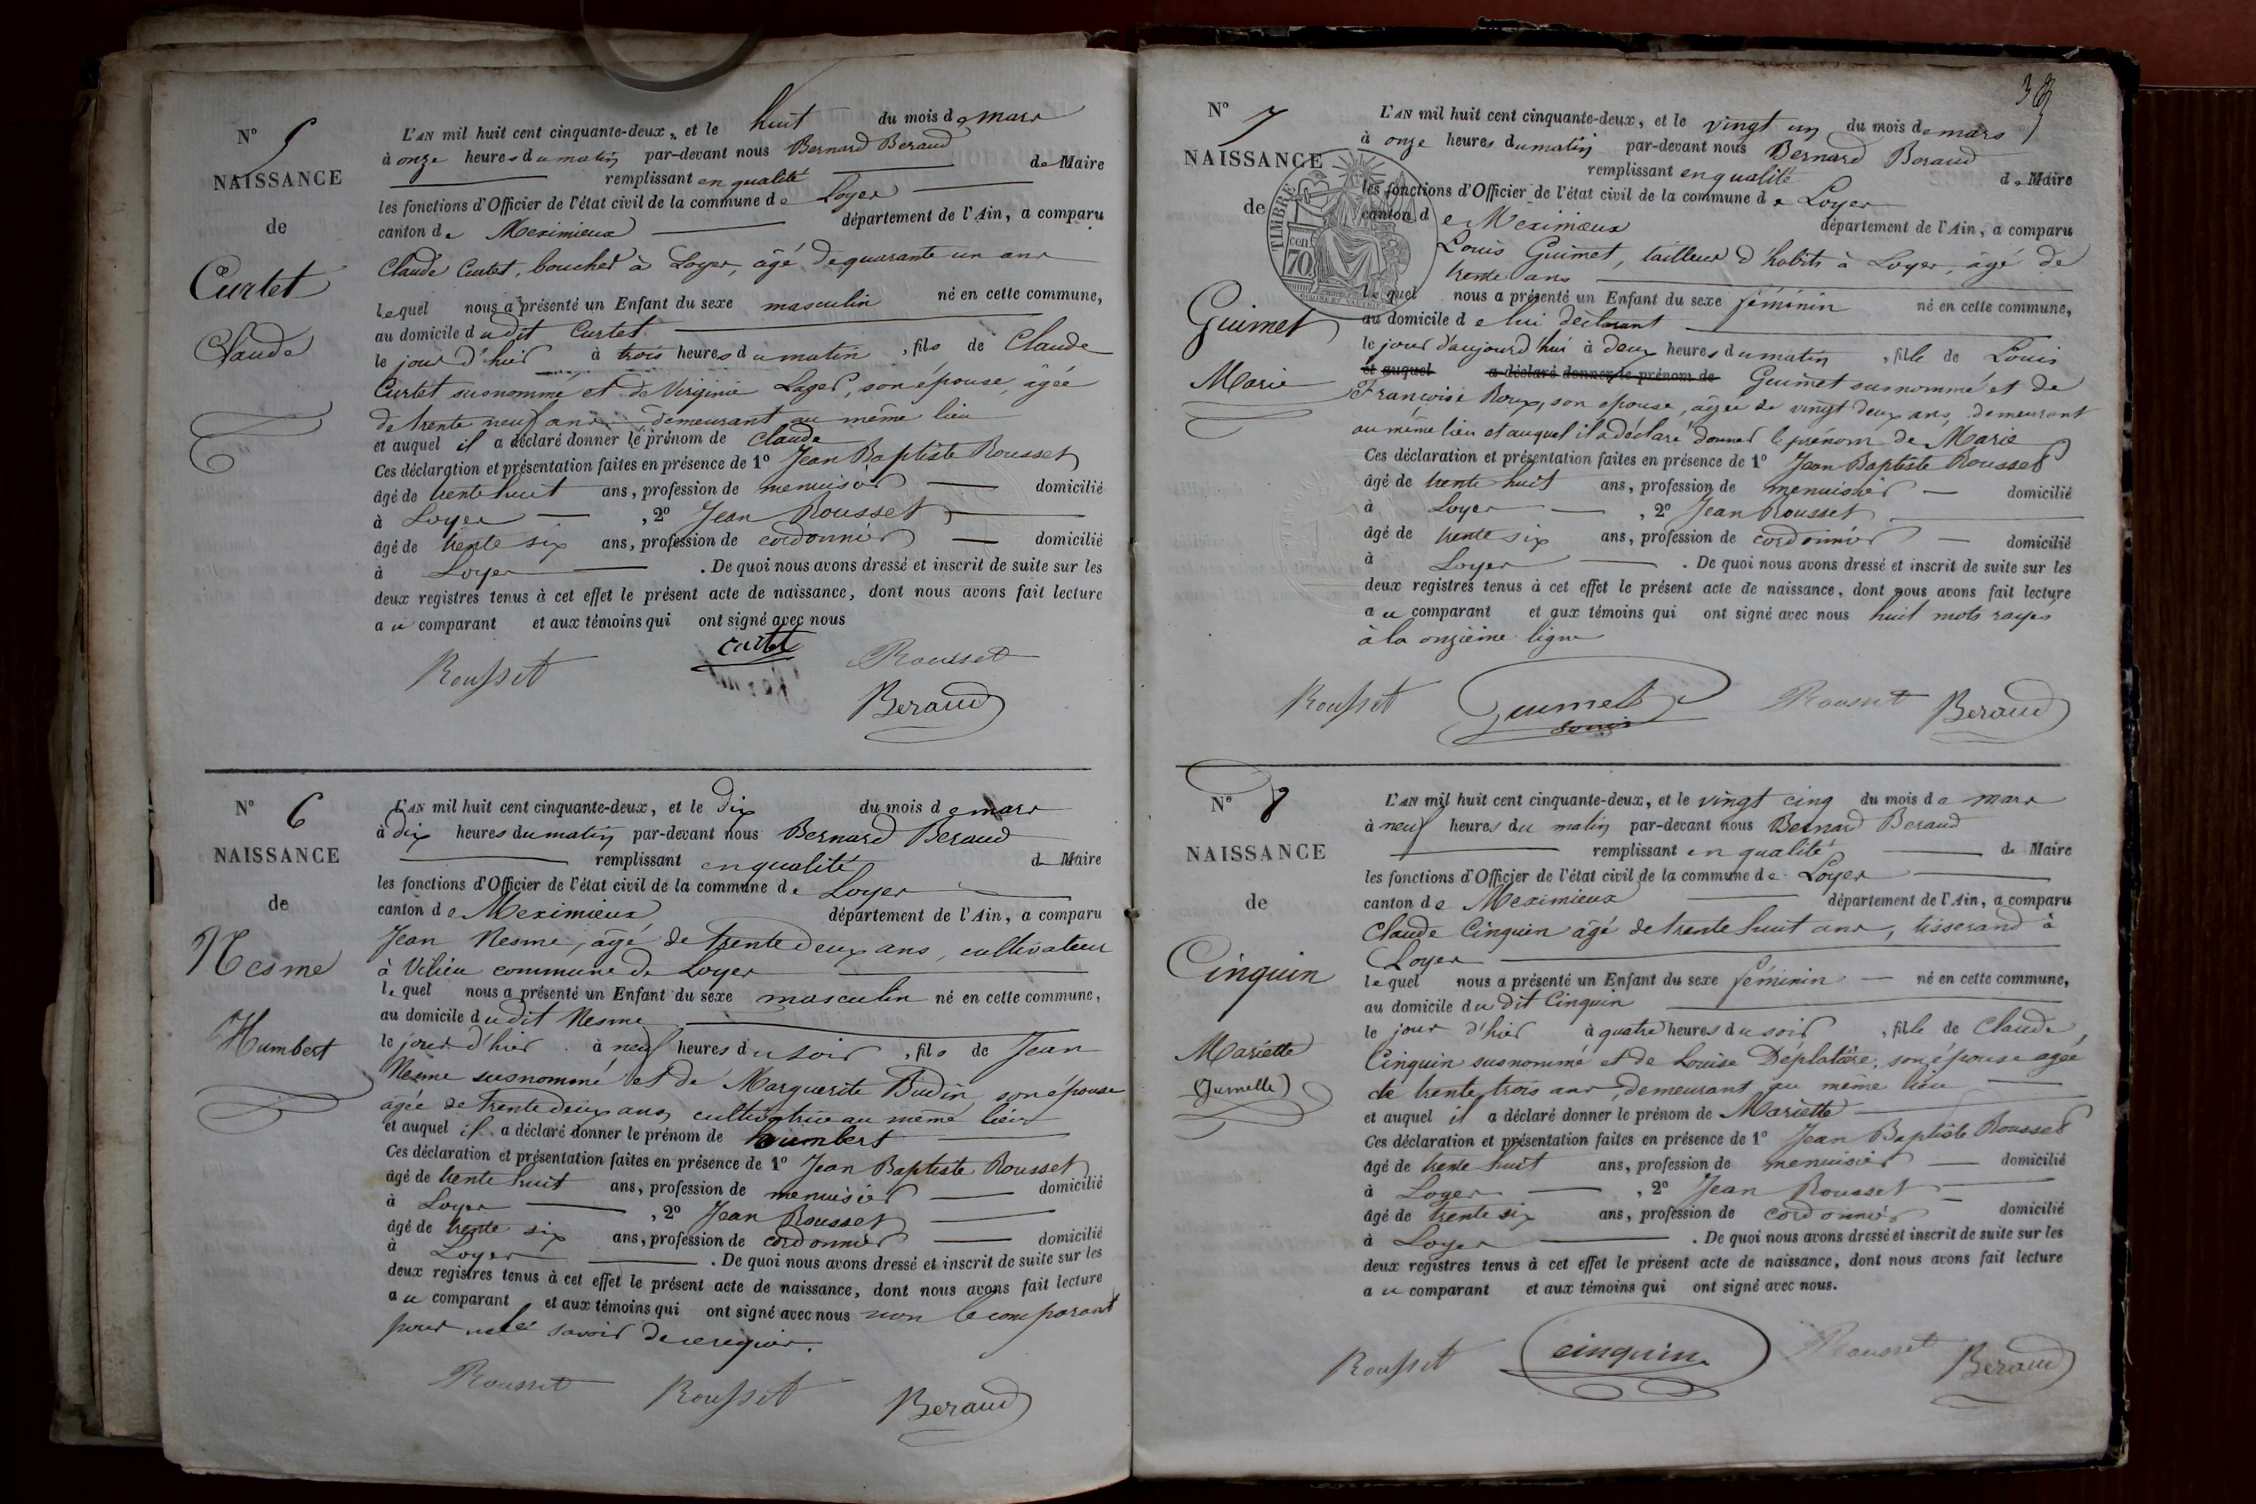 N° 5
NAISSANCE
de
Curtet
Claude
L'AN mil huit cent cinquante-deux, et le huit du mois de mars
à onze heures du matin par-devant nous Bernard Beraud
remplissant en qualité de Maire
les fonctions d'Officier de l'état civil de la commune de Loyes
canton de Meximieux département de l'Ain, a comparu
Claude Curtet, boucher à Loyes, âgé de quarante un ans
lequel nous a présenté un Enfant du sexe masculin né en cette commune,
au domicile dudit Curtet
le jour d'hier à trois heures du matin, fils de Claude
Curtet susnommé et de Virginie Loger, son épouse, âgée
de trente neuf ans demeurant au même lieu
et auquel il a déclaré donner le prénom de Claude
Ces déclaration et présentation faites en présence de 1° Jean Baptiste Rousset
âgé de trente huit ans, profession de menuisier domicilié
à Loyes, 2° Jean Rousset
âgé de trente six ans, profession de cordonnier domicilié
à Loyes. De quoi nous avons dressé et inscrit de suite sur les
deux registres tenus à cet effet le présent acte de naissance, dont nous avons fait lecture
au comparant et aux témoins qui ont signé avec nous
curtet
Rousset Rousset
Beraud
N° 6
NAISSANCE
de
Nesme
Humbert
L'AN mil huit cent cinquante-deux, et le dix du mois de mars
à dix heures du matin par-devant nous Bernard Beraud
remplissant en qualité de Maire
les fonctions d'Officier de l'état civil de la commune de Loyes
canton de Meximieux département de l'Ain, a comparu
Jean Nesme, âgé de trente deux ans, cultivateur
à Vilieu commune de Loyes
lequel nous a présenté un Enfant du sexe masculin né en cette commune,
au domicile dudit Nesme
le jour d'hier à neuf heures du soir, fils de Jean
Nesme susnommé et de Marguerite Budin, son épouse
âgée de trente deux ans, cultivatrice au même lieu
et auquel il a déclaré donner le prénom de humbert
Ces déclaration et présentation faites en présence de 1° Jean Baptiste Rousset
âgé de trente huit ans, profession de menuisier domicilié
à Loyes, 2° Jean Rousset
âgé de trente six ans, profession de cordonnier domicilié
à Loyes. De quoi nous avons dressé et inscrit de suite sur les
deux registres tenus à cet effet le présent acte de naissance, dont nous avons fait lecture
au comparant et aux témoins qui ont signé avec nous non le comparant
pour ne le savoir de ce requis.
Rousset Rousset Beraud
N° 7
NAISSANCE
de
Guimet
Marie
TIMBRE
cen
70
L'AN mil huit cent cinquante-deux, et le vingt un du mois de mars
à onze heures du matin par-devant nous Bernard Beraud
remplissant en qualité de Maire
les fonctions d'Officier de l'état civil de la commune de Loyes
canton de Meximieux département de l'Ain, a comparu
Louis Guimet, tailleur d'habits à Loyes, âgé de
trente ans
lequel nous a présenté un Enfant du sexe féminin né en cette commune,
au domicile de lui déclarant
le jour d'aujourd'hui à deux heures du matin, fille de Louis
et auquel a déclaré donner le prénom de Guimet susnommé et de
Françoise Roux, son épouse, âgée de vingt deux ans, demeurant
au même lieu et auquel il a déclaré donner le prénom de Marie
Ces déclaration et présentation faites en présence de 1° Jean Baptiste Rousset
âgé de trente huit ans, profession de menuisier domicilié
à Loyes, 2° Jean Rousset
âgé de trente six ans, profession de cordonnier domicilié
à Loyes. De quoi nous avons dressé et inscrit de suite sur les
deux registres tenus à cet effet le présent acte de naissance, dont nous avons fait lecture
au comparant et aux témoins qui ont signé avec nous huit mots rayés
à la onzième ligne
Rousset Guimet Rousset Beraud
Louis
N° 8
NAISSANCE
de
Cinquin
Mariette
(Jumelle)
L'AN mil huit cent cinquante-deux, et le vingt cinq du mois de mars
à neuf heures du matin par-devant nous Bernard Beraud
remplissant en qualité de Maire
les fonctions d'Officier de l'état civil de la commune de Loyes
canton de Meximieux département de l'Ain, a comparu
Claude Cinquin âgé de trente huit ans, tisserand à
Loyes
lequel nous a présenté un Enfant du sexe féminin né en cette commune,
au domicile dudit Cinquin
le jour d'hier à quatre heures du soir, fille de Claude
Cinquin susnommé et de Louise Déplatière, son épouse agée
de trente trois ans, demeurant au même lieu
et auquel il a déclaré donner le prénom de Mariette
Ces déclaration et présentation faites en présence de 1° Jean Baptiste Rousset
âgé de trente huit ans, profession de menuisier domicilié
à Loyes, 2° Jean Rousset
âgé de trente six ans, profession de cordonnier domicilié
à Loyes. De quoi nous avons dressé et inscrit de suite sur les
deux registres tenus à cet effet le présent acte de naissance, dont nous avons fait lecture
au comparant et aux témoins qui ont signé avec nous.
Rousset cinquin Rousset Beraud